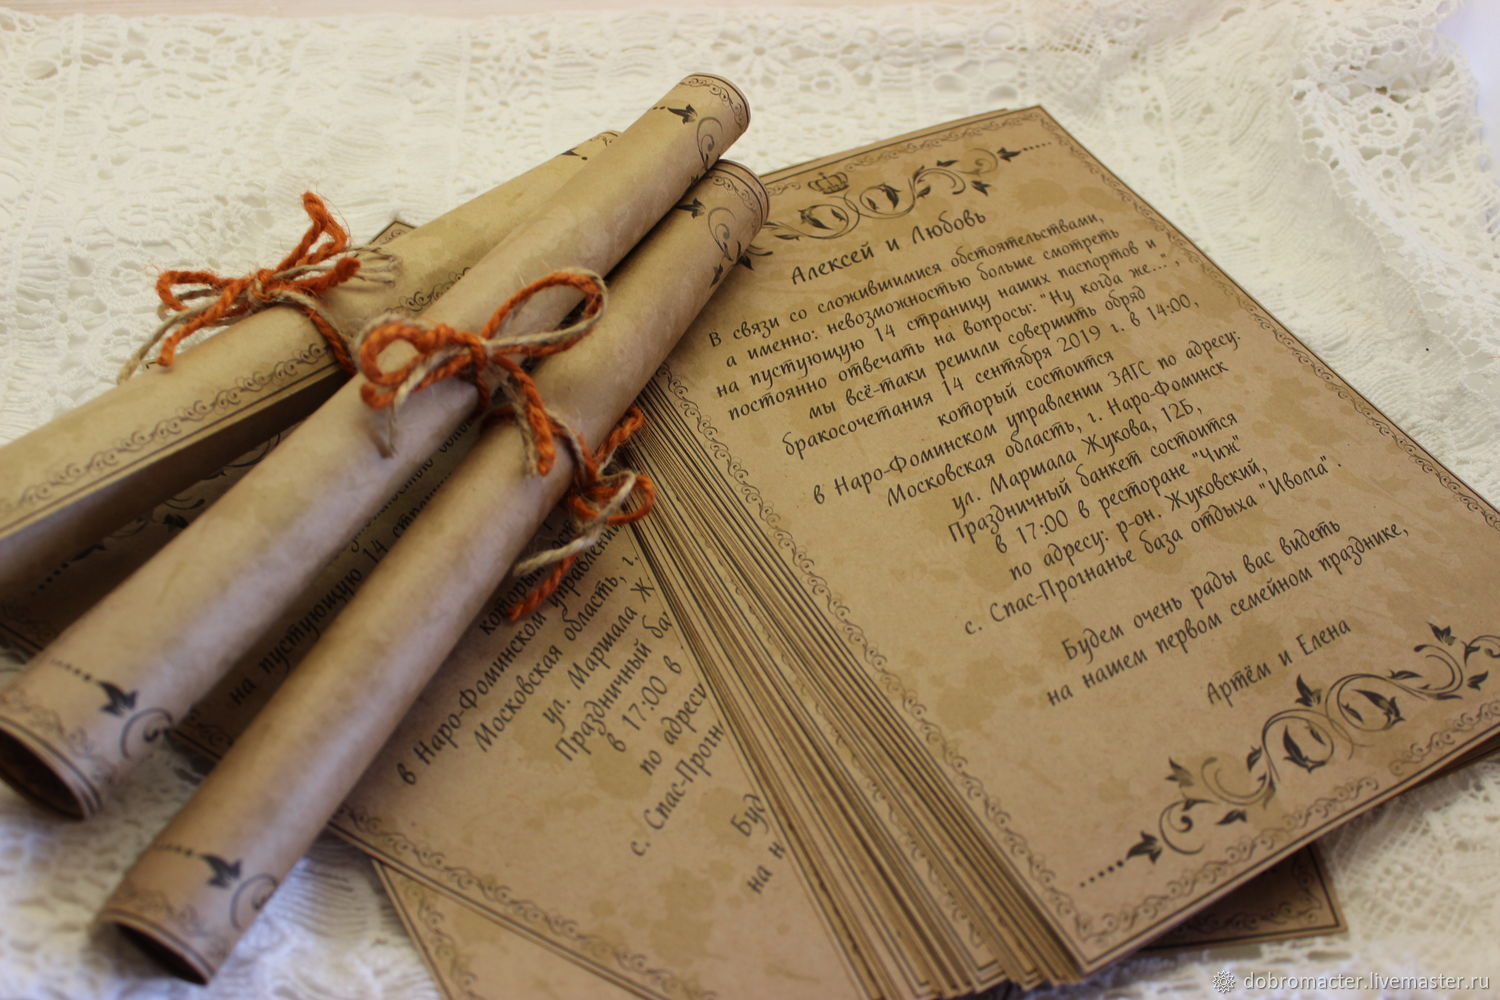 Алексей и Любовь
В связи со сложившимися обстоятельствами,
а именно: невозможностью больше смотреть
на пустующую 14 страницу наших паспортов и
постоянно отвечать на вопросы: "Ну когда же...",
мы всё-таки решили совершить обряд
бракосочетания 14 сентября 2019 г. в 14:00,
который состоится
в Наро-Фоминском управлении ЗАГС по адресу:
Московская область, г. Наро-Фоминск
ул. Маршала Жукова, 12Б,
Праздничный банкет состоится
в 17:00 в ресторане "Чиж"
по адресу: р-он. Жуковский,
с. Спас-Прогнанье база отдыха "Иволга".
Будем очень рады вас видеть
на нашем первом семейном празднике,
Артём и Елена
на пустующую 14
в Наро-Фоминском управлении
Московская область, г.
ул. Маршала Ж
Праздничный ба
в 17:00 в
по адресу
с. Спас-Прогн
Буд
на н
dobromacter.livemaster.ru